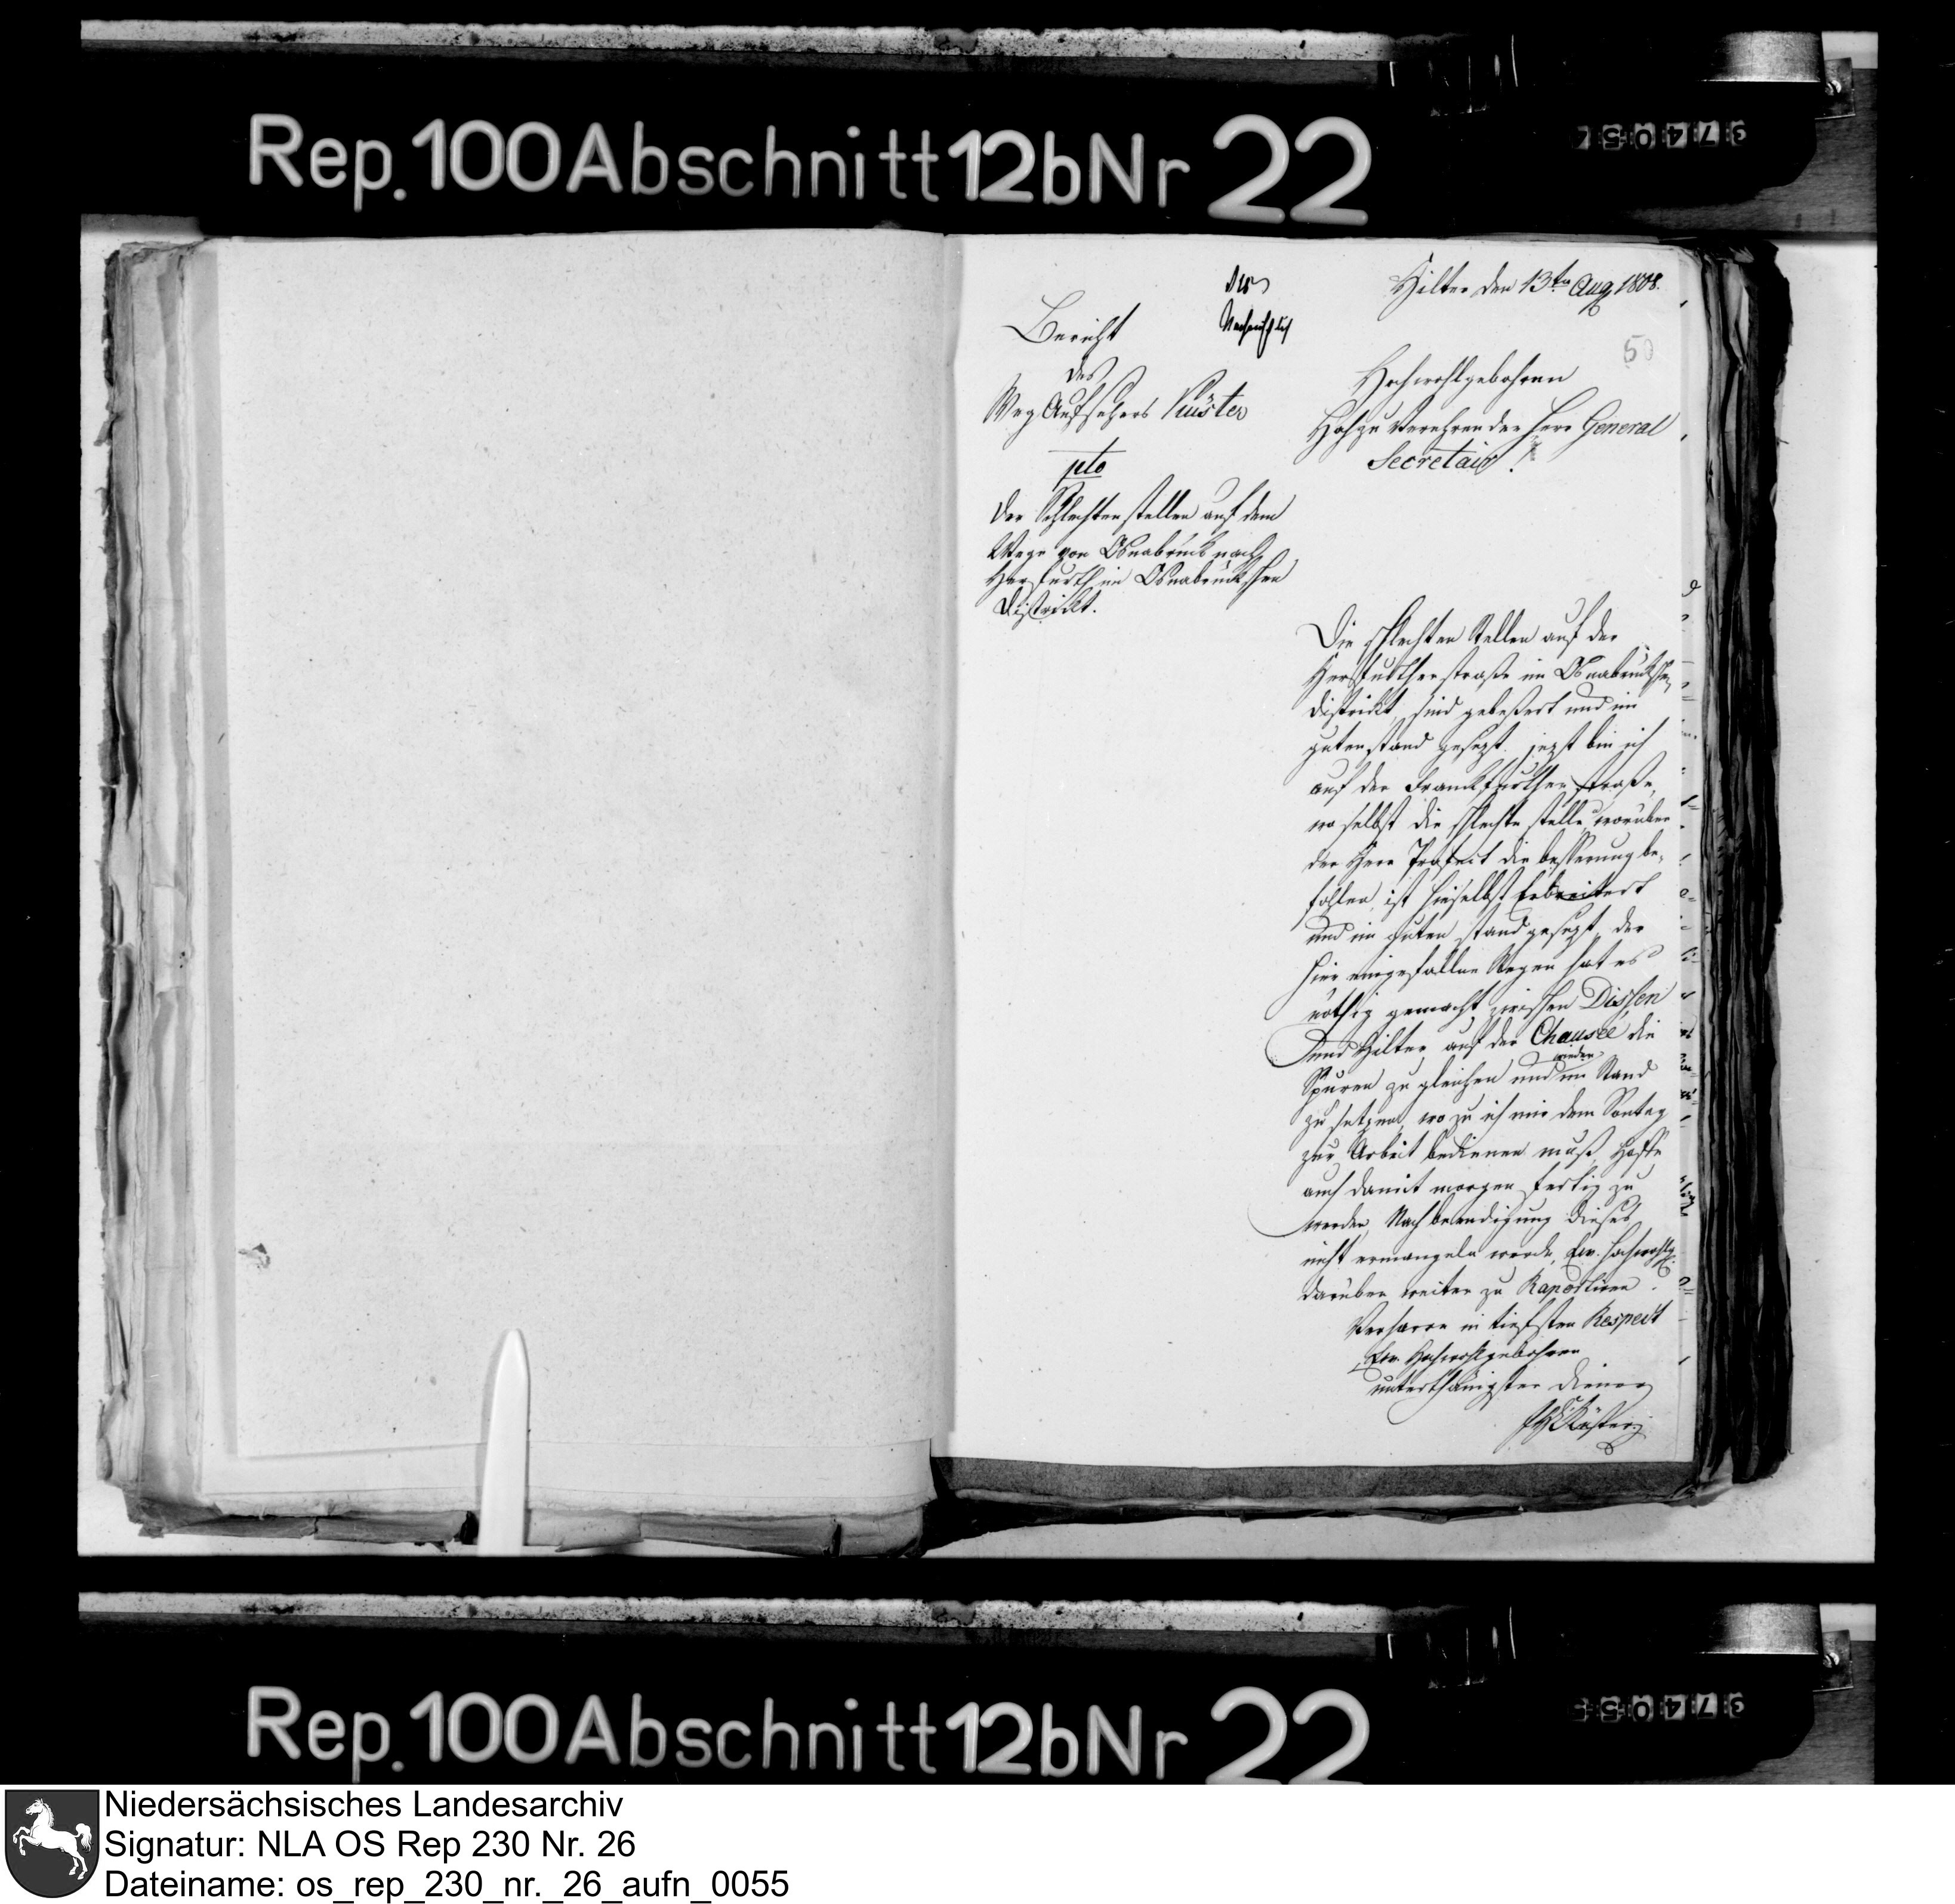 Rep. 100 Abschnitt 12b Nr 22
Hilter den 13ten Aug 1808.
50
Bericht
des
Weg Aufsehers Küster
pto
der Schlechten stellen auf dem
Wege von Osnabrück nach
Herfurth im Osnabrückschen
District.
Hochwohlgebohren
Hochzu Verehrender Herr General
Secretair!
Die schlechten Stellen auf der
Herfurther straße im Osnabrückschen
District, sind gebeßert und im
guten stand gesezt. jezt bin ich
auf der Franckfurther straße,
wo selbst die schlechte stelle worüber
der Herr Prefect die besserung be-
fohlen, ist hieselbst Erbreitert
und im guten stand gesezt, der
hier eingefallne Regen hat es
nöthig gemacht zwischen Dissen
und Hilter auf der Chausée die
Spuren zu gleichen und wieder im Stand
zu setzen, wo zu ich mir dem Sontag
zur Arbeit bedienen muß, hoffe
auch damit morgen fertig zu
werden, Nach beendigung dieses
nicht ermangeln werde, Ew. Hochwohlg.
darüber weiter zu Raportiren.
Verharre in tiefsten Respect
Ew. Hochwohlgebohren
unterthänigster Diener
Küster
Rep. 100 Abschnitt 12b Nr 22
Niedersächsisches Landesarchiv
Signatur: NLA OS Rep 230 Nr. 26
Dateiname: os_rep_230_nr._26_aufn_0055